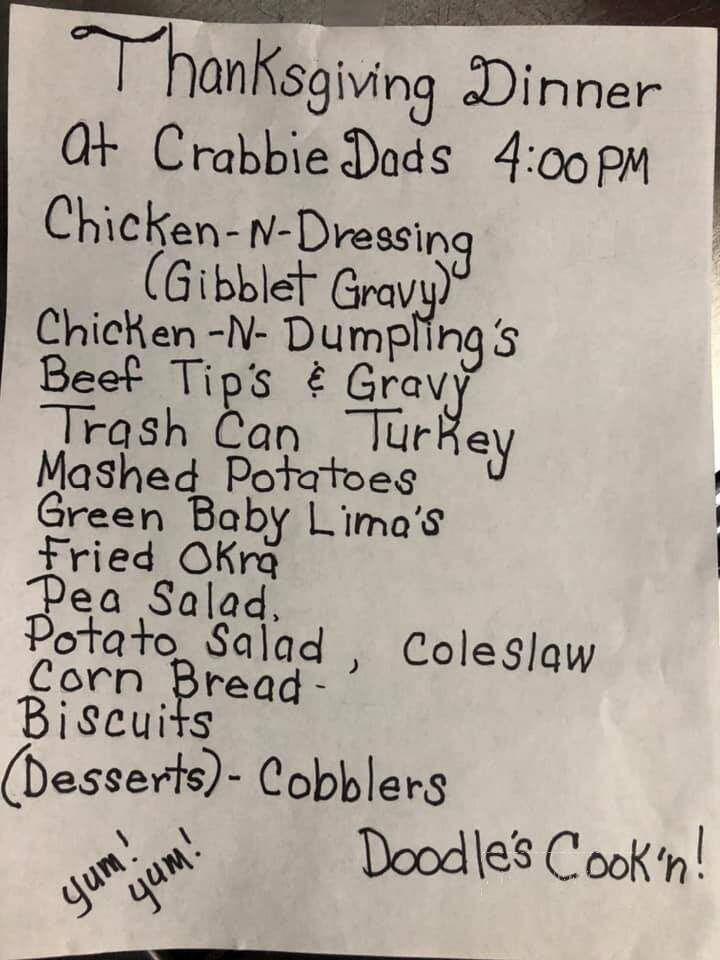 Thanksgiving Dinner
at Crabbie Dads 4:00 PM
Chicken-N-Dressing
(Gibblet Gravy)
Chicken-N- Dumpling's
Beef Tip's & Gravy
Trash Can Turkey
Mashed Potatoes
Green Baby Lima's
Fried Okra
Pea Salad,
Potato Salad, Coleslaw
Corn Bread-
Biscuits
(Desserts)- Cobblers
yum! yum!
Doodle's Cook'n!